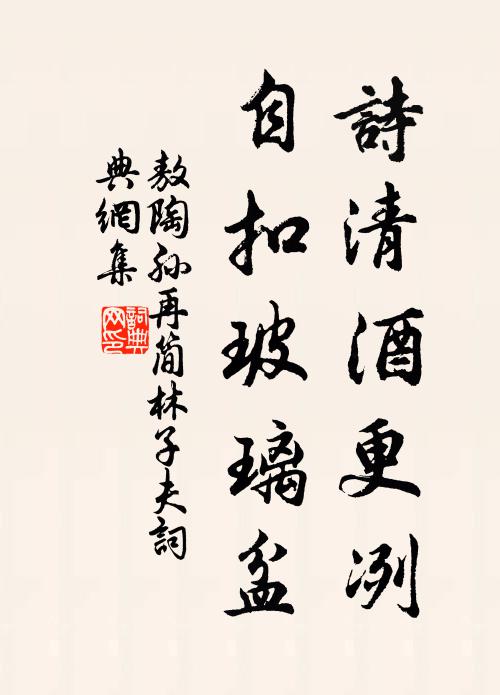 詩清酒更冽
自扣玻璃盆
敖陶孙再简林子夫詞
典網集
詞典網印